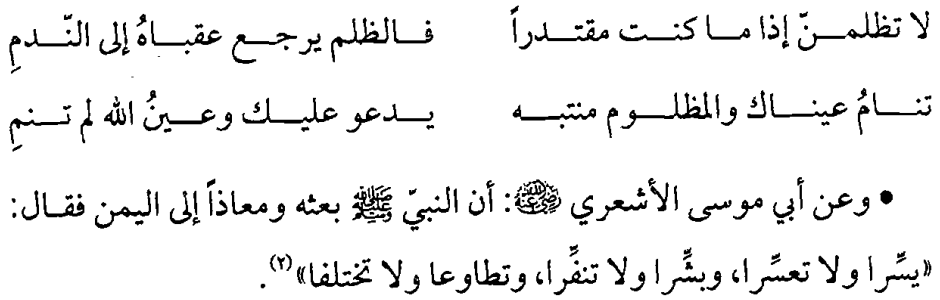 لا تظلمنّ إذا ما كنت مقتدراً فالظلم يرجع عقباهُ إلى النّدمِ
تنامُ عيناك والمظلوم منتبه يدعو عليك وعينُ الله لم تنمِ
• وعن أبي موسى الأشعري رضي الله عنه: أن النبيّ ﷺ بعثه ومعاذاً إلى اليمن فقال:
«يسِّرا ولا تعسِّرا، وبشِّرا ولا تنفِّرا، وتطاوعا ولا تختلفا»(٢).